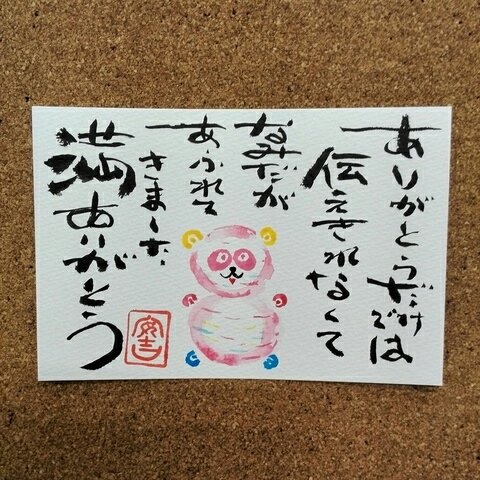 ありがとうだけでは
伝えきれなくて
なみだが
あふれて
きました
満ありがとう